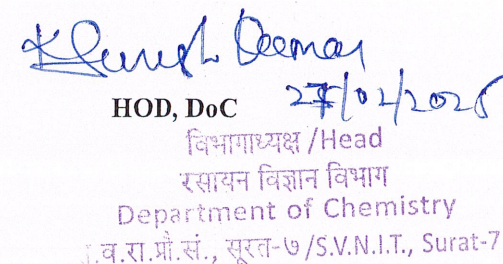 HOD, DoC
विभागाध्यक्ष /Head
रसायन विज्ञान विभाग
Department of Chemistry
.व.रा.प्रौ.सं., सूरत-७ /S.V.N.I.T., Surat-7